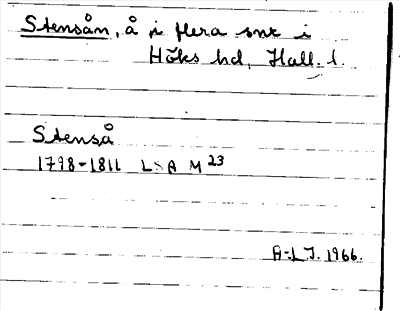 Stensån, å i flera snr i
Höks hd, Hall. l.
Stenså
1798-1811 LSA M 23
A-L J. 1966.